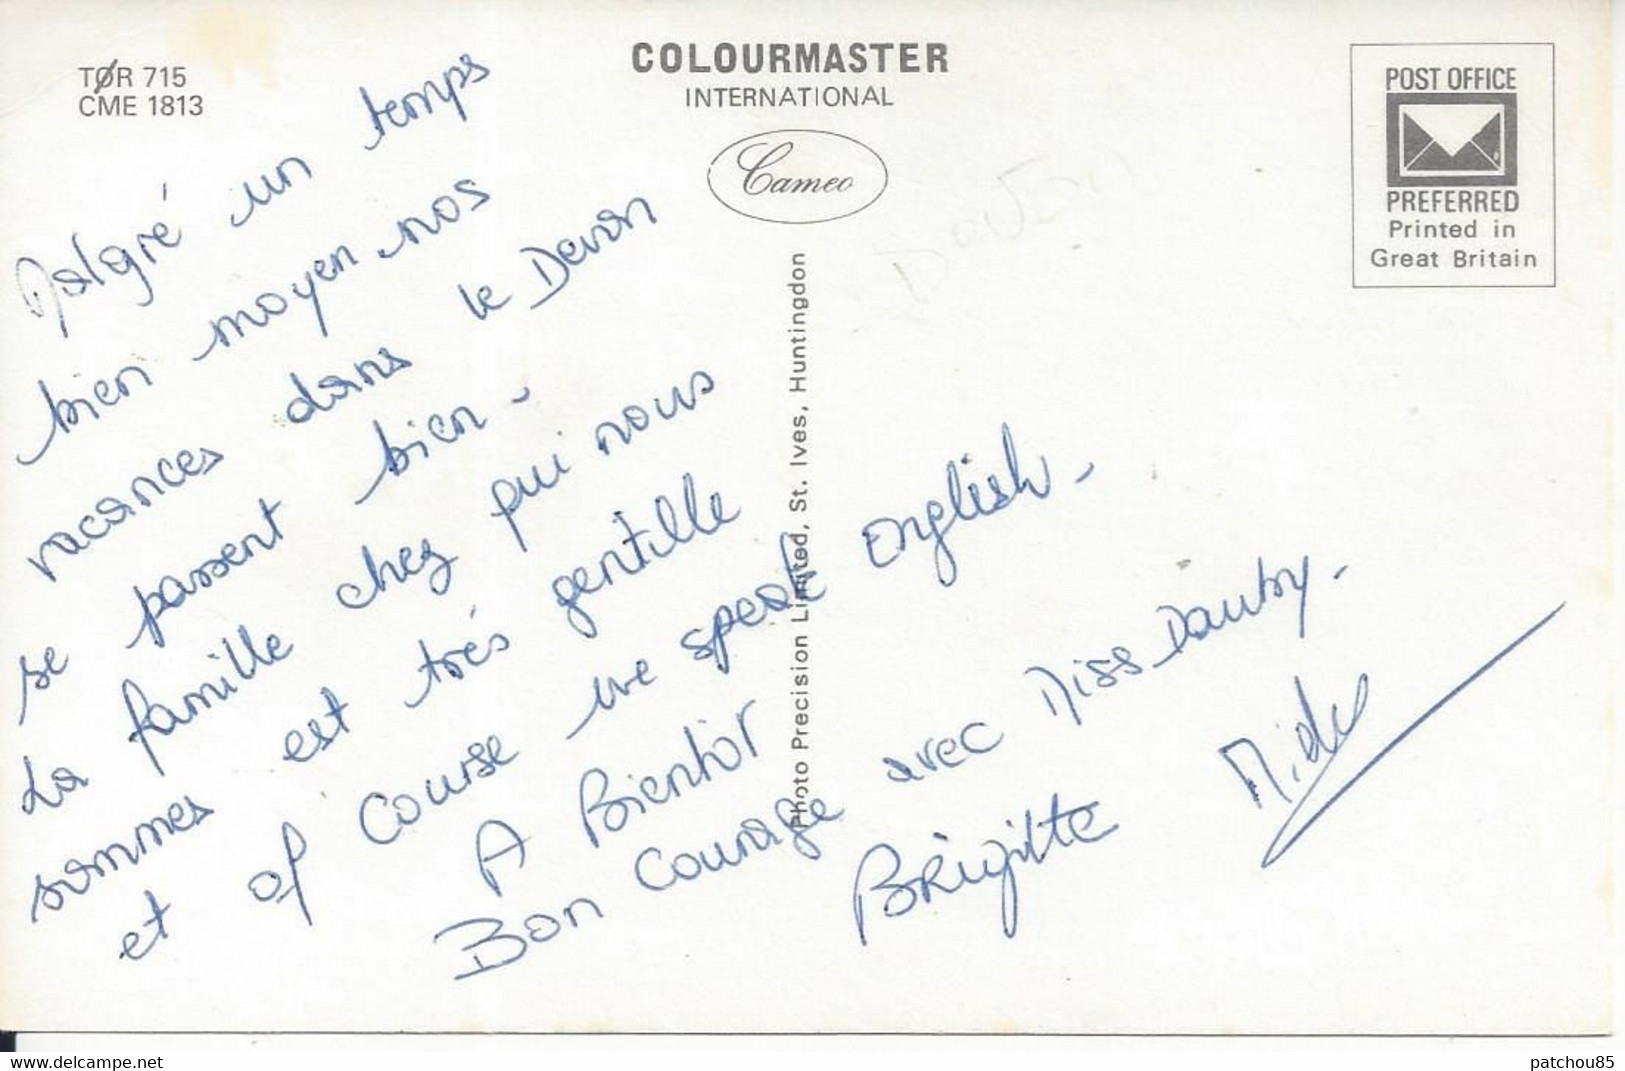 TØR 715
CME 1813
COLOURMASTER
INTERNATIONAL
Cameo
POST OFFICE
PREFERRED
Printed in
Great Britain
Malgré un temps
bien moyen nos
vacances dans le Devon
se passent bien -
La famille chez qui nous
sommes est trés gentille
et of course we speak english -
A Bientôt
Bon courage avec Miss Dauby -
Brigitte
Photo Precision Limited, St. Ives, Huntingdon
Devon
patchou85